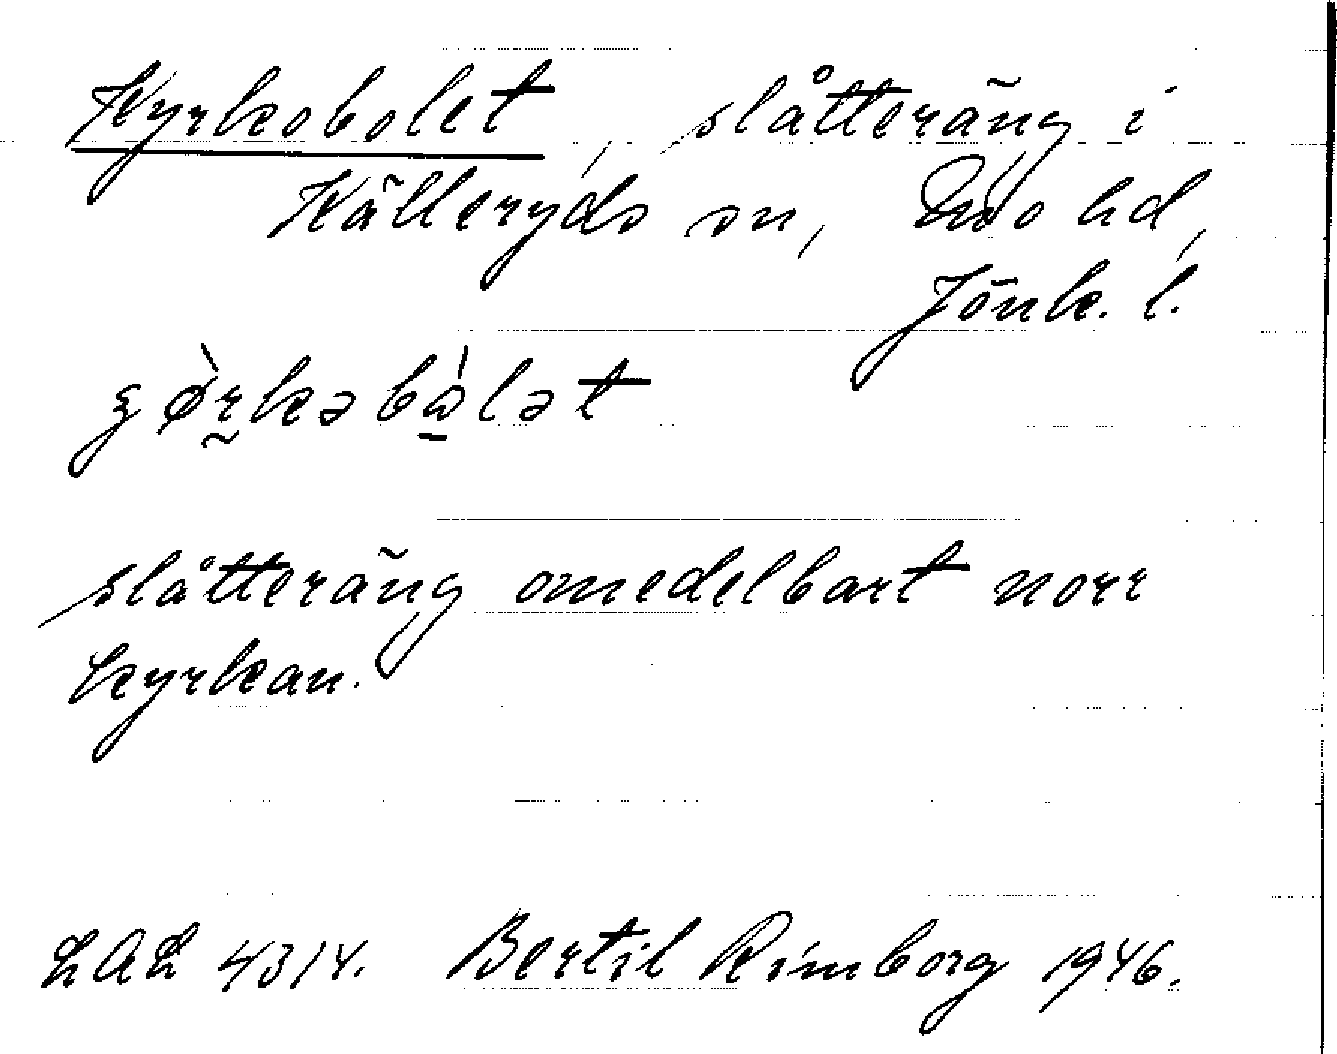 Kyrkobolet, slåtteräng i
Källeryds sn, Mo hd,
Jönk. l.
slåtteräng omedelbart norr
kyrkan.
LAL 4314. Bertil Rimborg 1946.